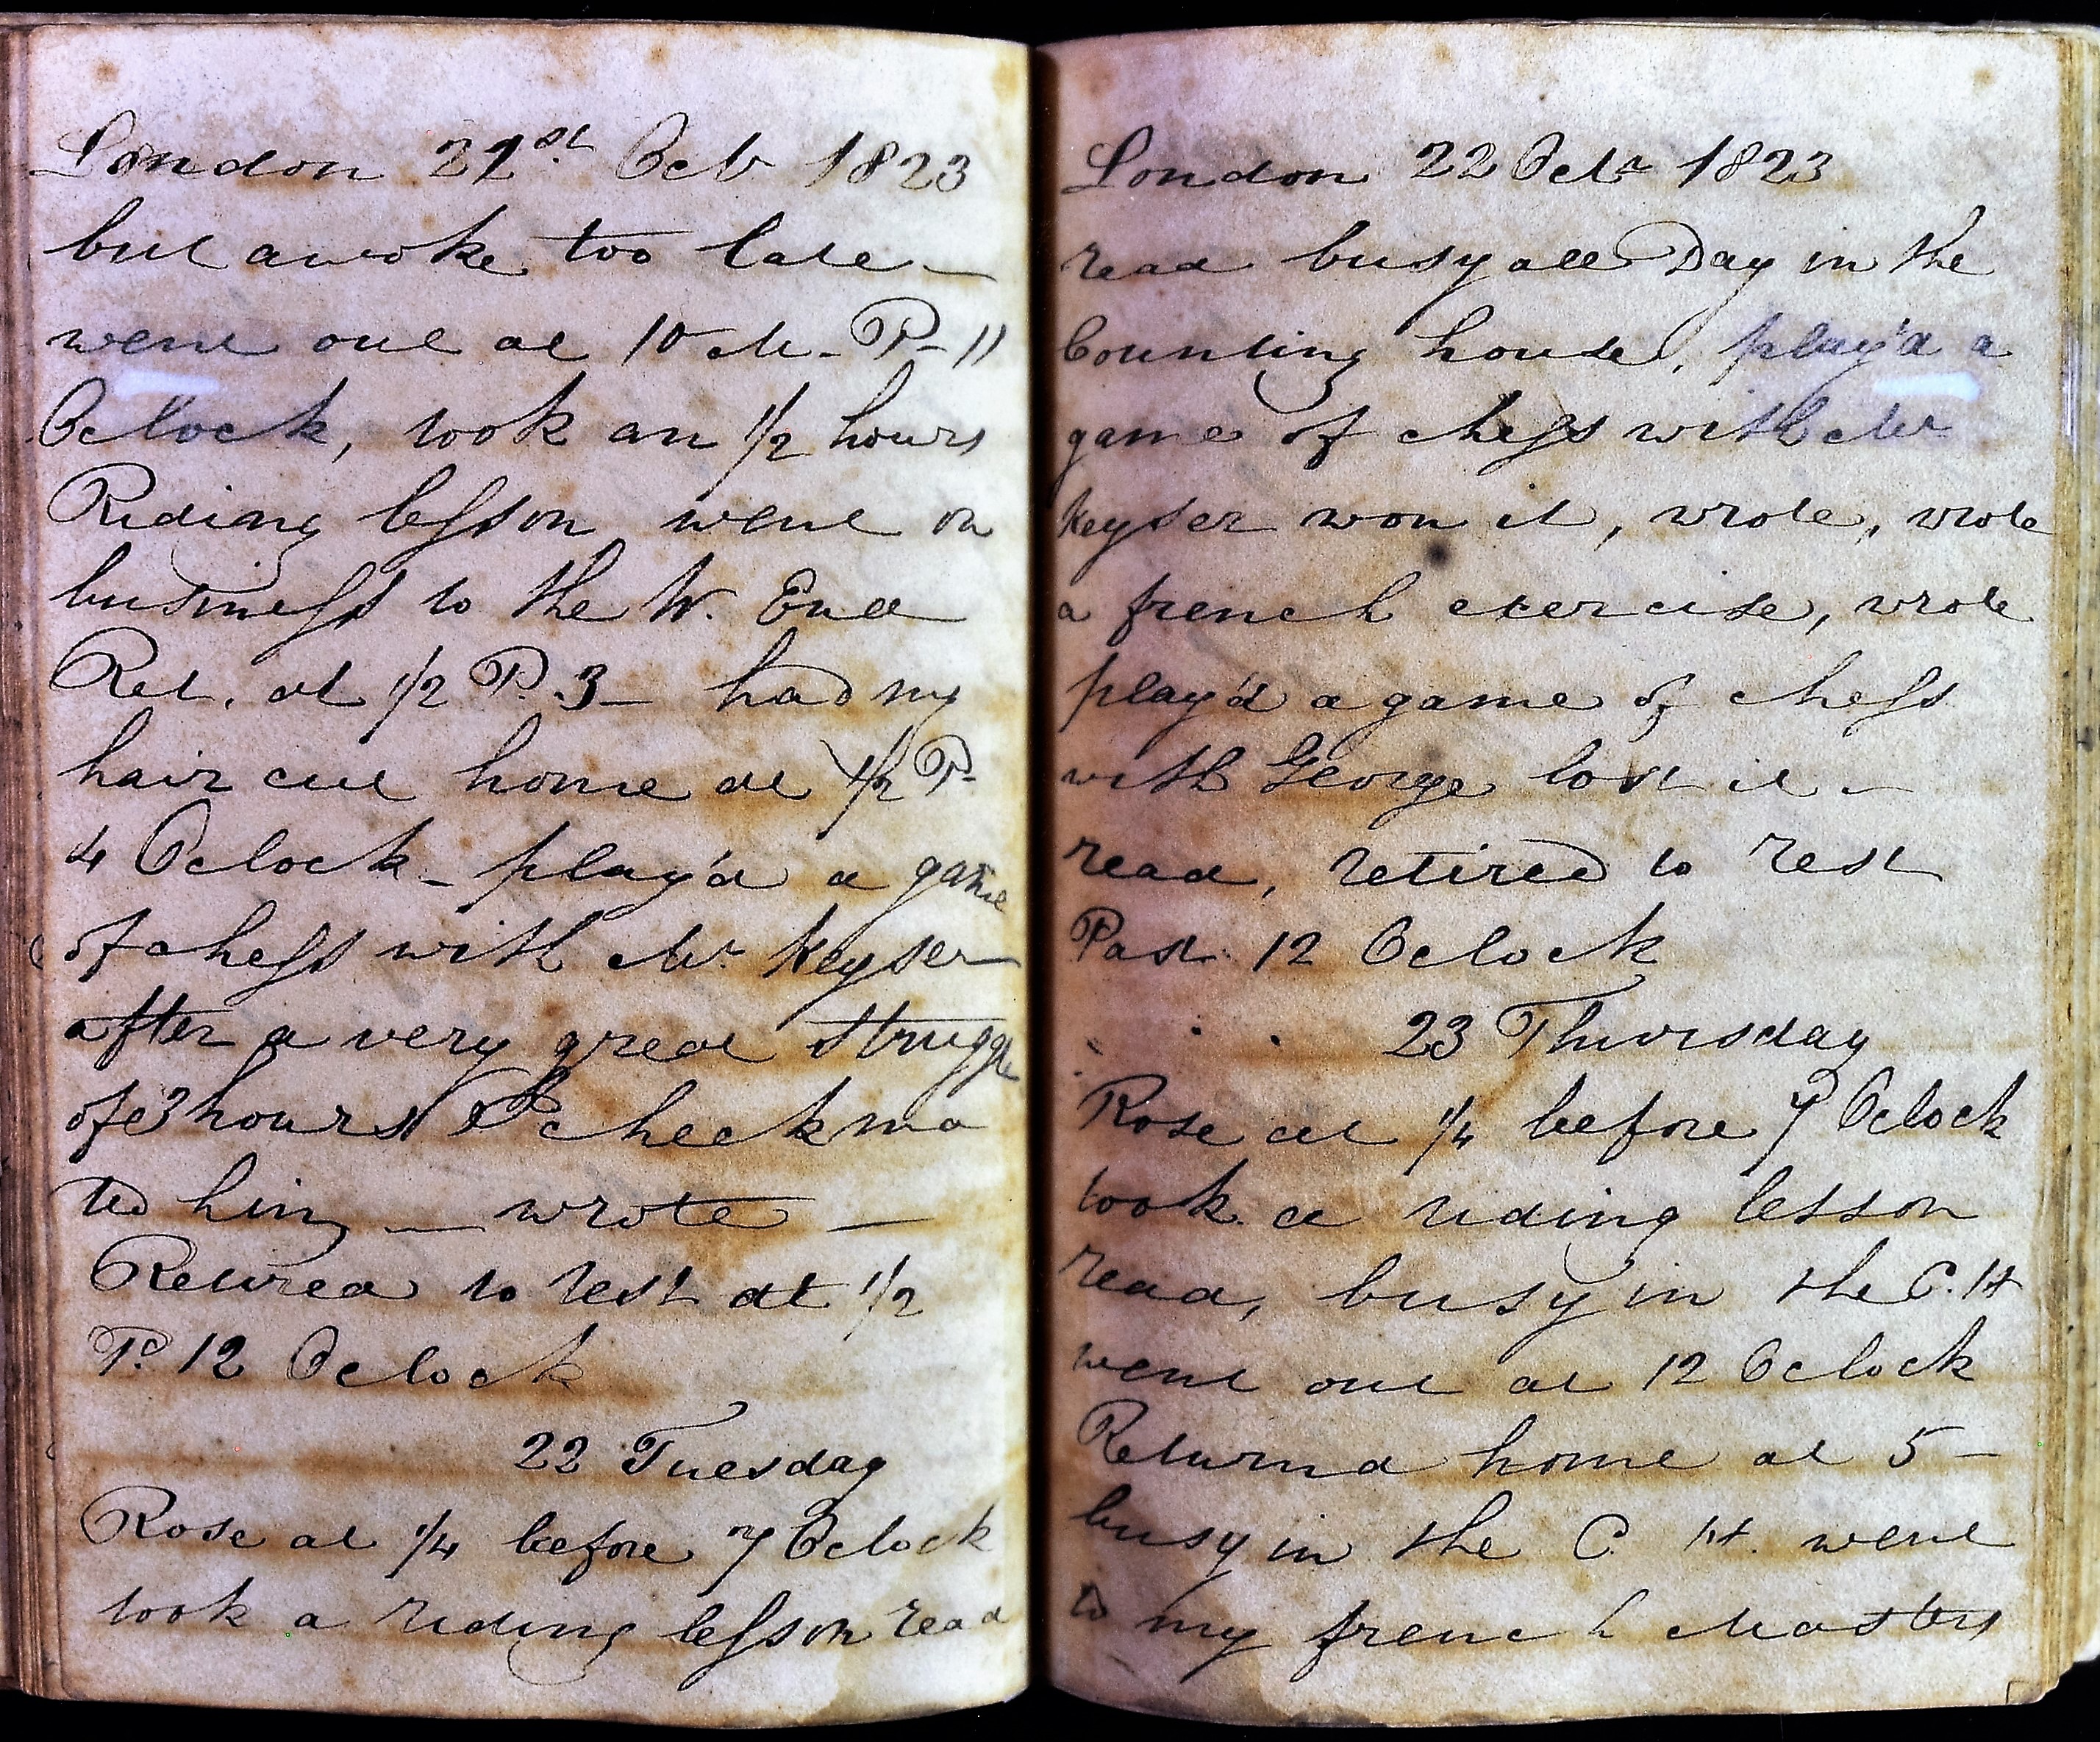 London 21st Oct 1823
but awoke too late —
went out at 10 M. P. 11
Oclock, took an 1/2 hours
Riding lesson went on
business to the W. End
Ret. at 1/2 P. 3 — had my
hair cut home at 1/2 P.
4 Oclock — play'd a game
of chess with Mr Keyser
after a very great struggle
of 3 hours I checkma
ted him — wrote —
Retired to rest at 1/2
P. 12 Oclock
22 Tuesday
Rose at 1/4 before 7 Oclock
took a riding lesson read
London 22 Octr 1823
read busy all Day in the
Counting house, play'd a
game of chess with Mr
Keyser won it, wrote, wrote
a french exercise, wrote
play'd a game of chess
with George lost it —
read, retired to rest
Past 12 Oclock
23 Thursday
Rose at 1/4 before 7 Oclock
took a riding lesson
read, busy in the C. H
went out at 12 Oclock
Returnd home at 5 —
busy in the C. H. went
to my french Masters